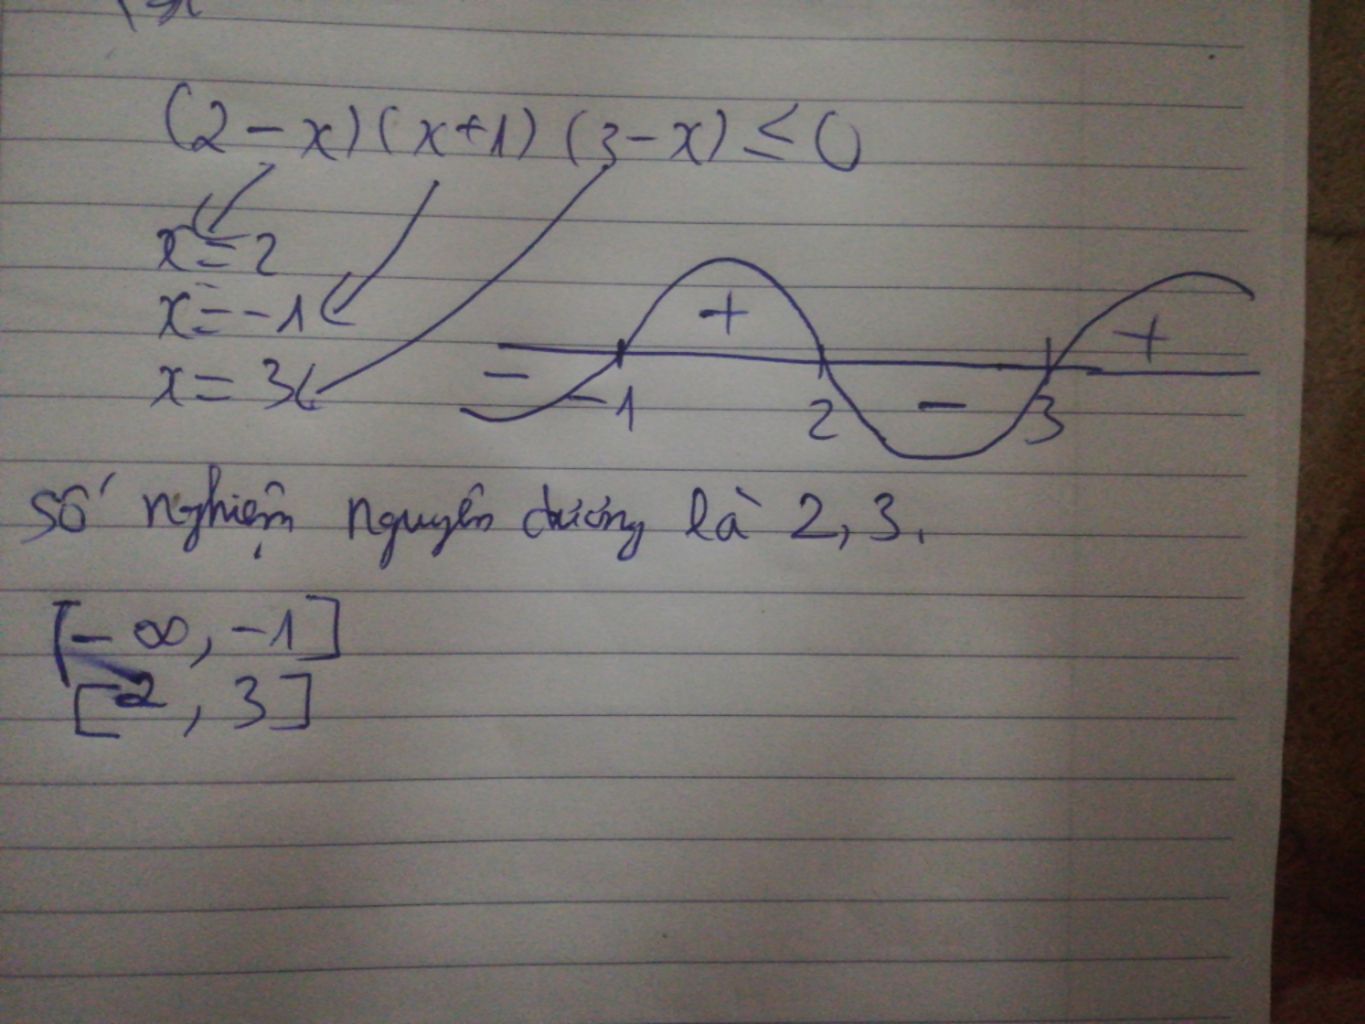 (2-x)(x+1)(3-x)≤0
x=2
x=-1
x=3
- + - +
-1 2 3
số nghiệm nguyên dương là 2,3.
[-∞,-1]
[2,3]